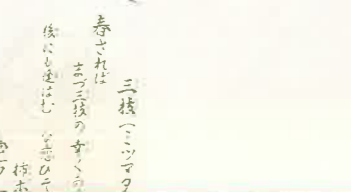 三椏(ミツマタ
春されば
まづ三枝の幸く
後にも逢はむ な恋ひ
柿本